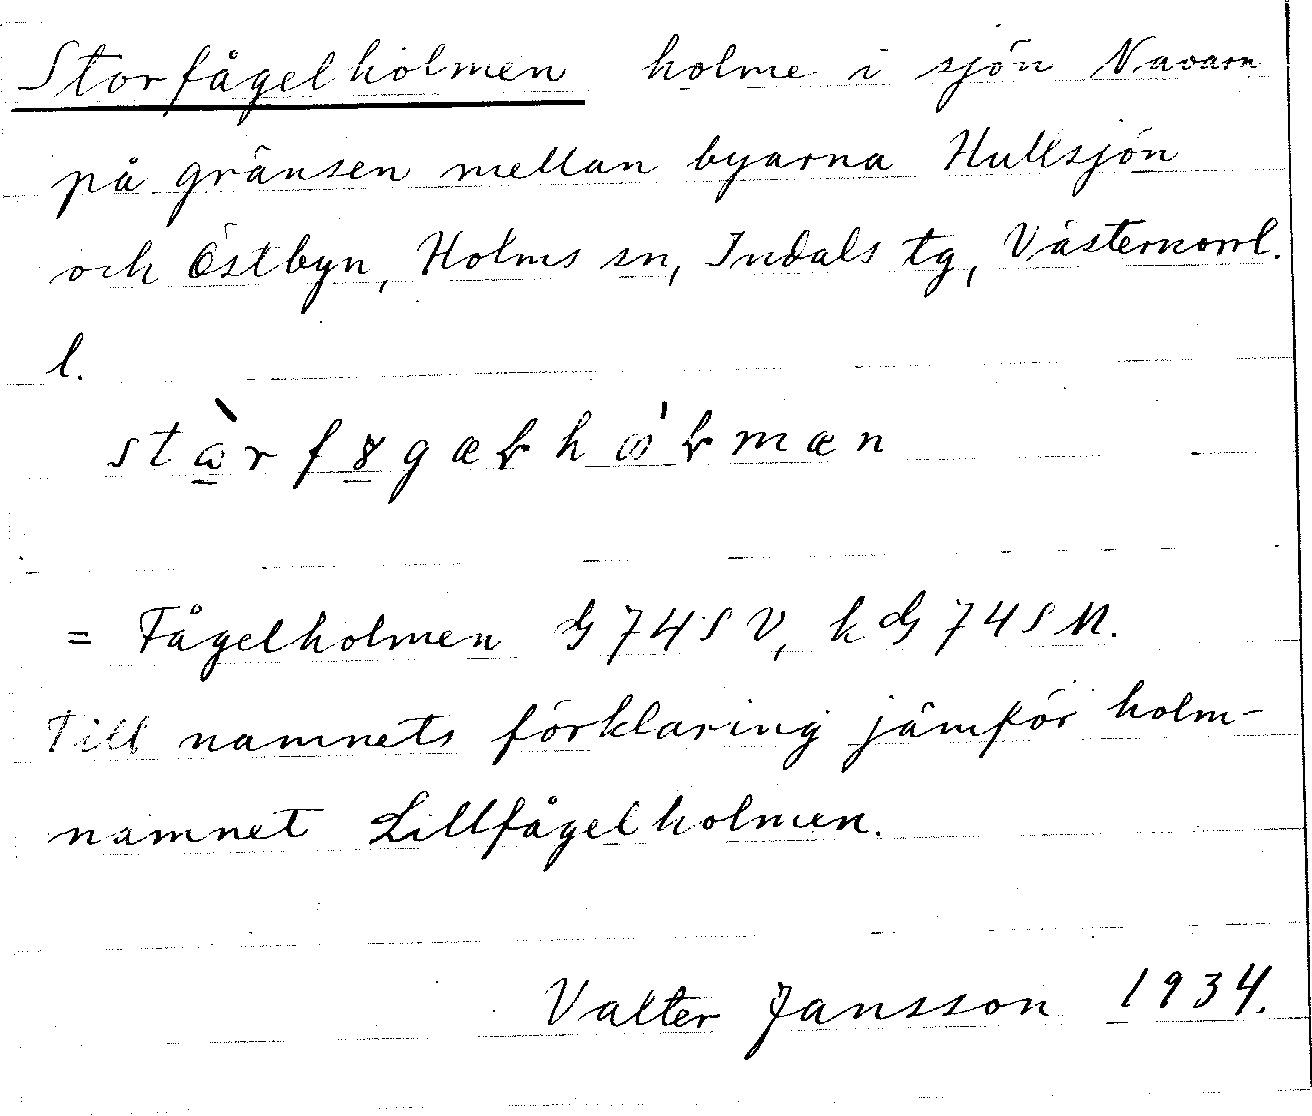 Storfågelholmen holme i sjön Navarn
på gränsen mellan byarna Hullsjön
och Östbyn, Holms sn, Indals tg, Västernorrl.
l.
= Fågelholmen G 74 S V, k G 74 S N.
Till namnets förklaring jämför holm-
namnet Lillfågelholmen.
Valter Jansson 1934.